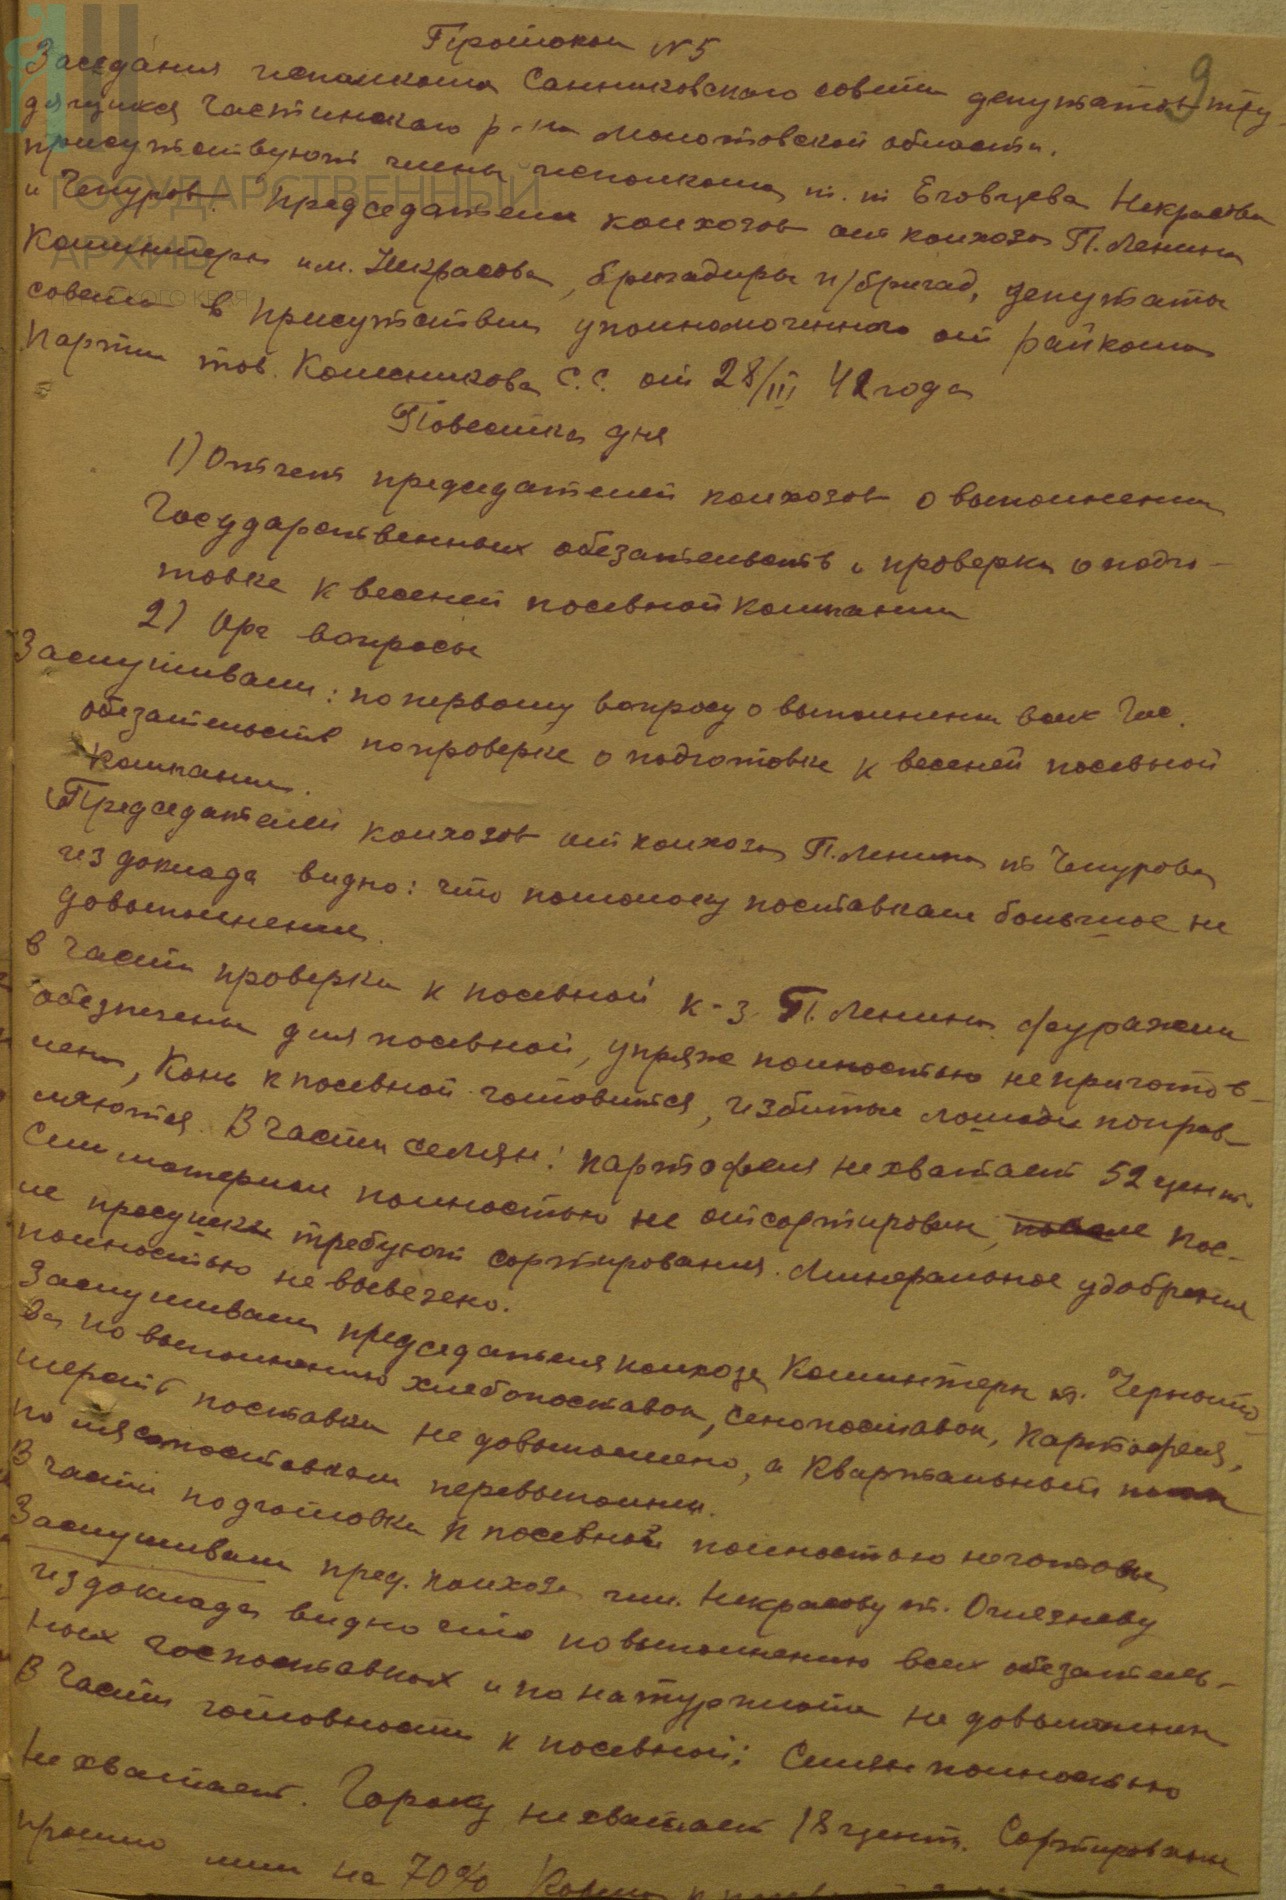 9
Протокол N5
Заседания исполкома Санниковского совета депутатов тру-
дящихся Частинского р-на Молотовской области.
присутствуют члены исполкома т.т Еговцева Некрасова
и Чепуров. Председатели колхозов от колхоза П. Ленина
Коминтерн им. Некрасова, бригадиры п/бригад, депутаты
совета в присутствии уполномоченного от райкома
Партии тов. Колесникова С.С. от 28/III 42 года
Повестка дня
1) Отчет председателей колхозов о выполнении
Государственных обезательств и проверки о подго-
товке к весеней посевной компании
2) Орг вопросы
Заслушивали: по первому вопросу о выполнении всех Гос.
обезательств попроверке о подготовке к весеней посевной
компании.
Председателей колхозов от колхоза П. Ленина т Чепурова
из доклада видно: что помолоку поставкам большое не
довыполнение.
в части проверки к посевной к-з. П. Ленина фуражем
обезпечены для посевной, упряж полностью неприготов-
лена, Конь к посевной готовится, избитые лошади поправ-
ляются. В части семян: картофеля нехватает 52 цент.
Сем материал полностью не отсортирован, пос-
ле просушки требуют сортирования. Минеральное удобрения
полностью не вывезено.
Заслушивали председателя колхоза Коминтерн т. Черното
ва по выполнению хлебопоставок, сенопоставок, картофеля,
шерсть поставки не довыполнено, а Квартальный план
по мясопоставкам перевыполнен.
В части подготовки к посевной полностью неготовы
Заслушивали пред. колхоза им. Некрасову т.
из доклада видно что повыполнению всех обезатель-
ных госпоставках и по натуроплате не довыполнен
В части готовности к посевной: Семян полностью
Не хватает. Гороху нехватает 18 цент. Сортирование
прошло лиш на 70%
ГОСУДАРСТВЕННЫЙ
АРХИВ